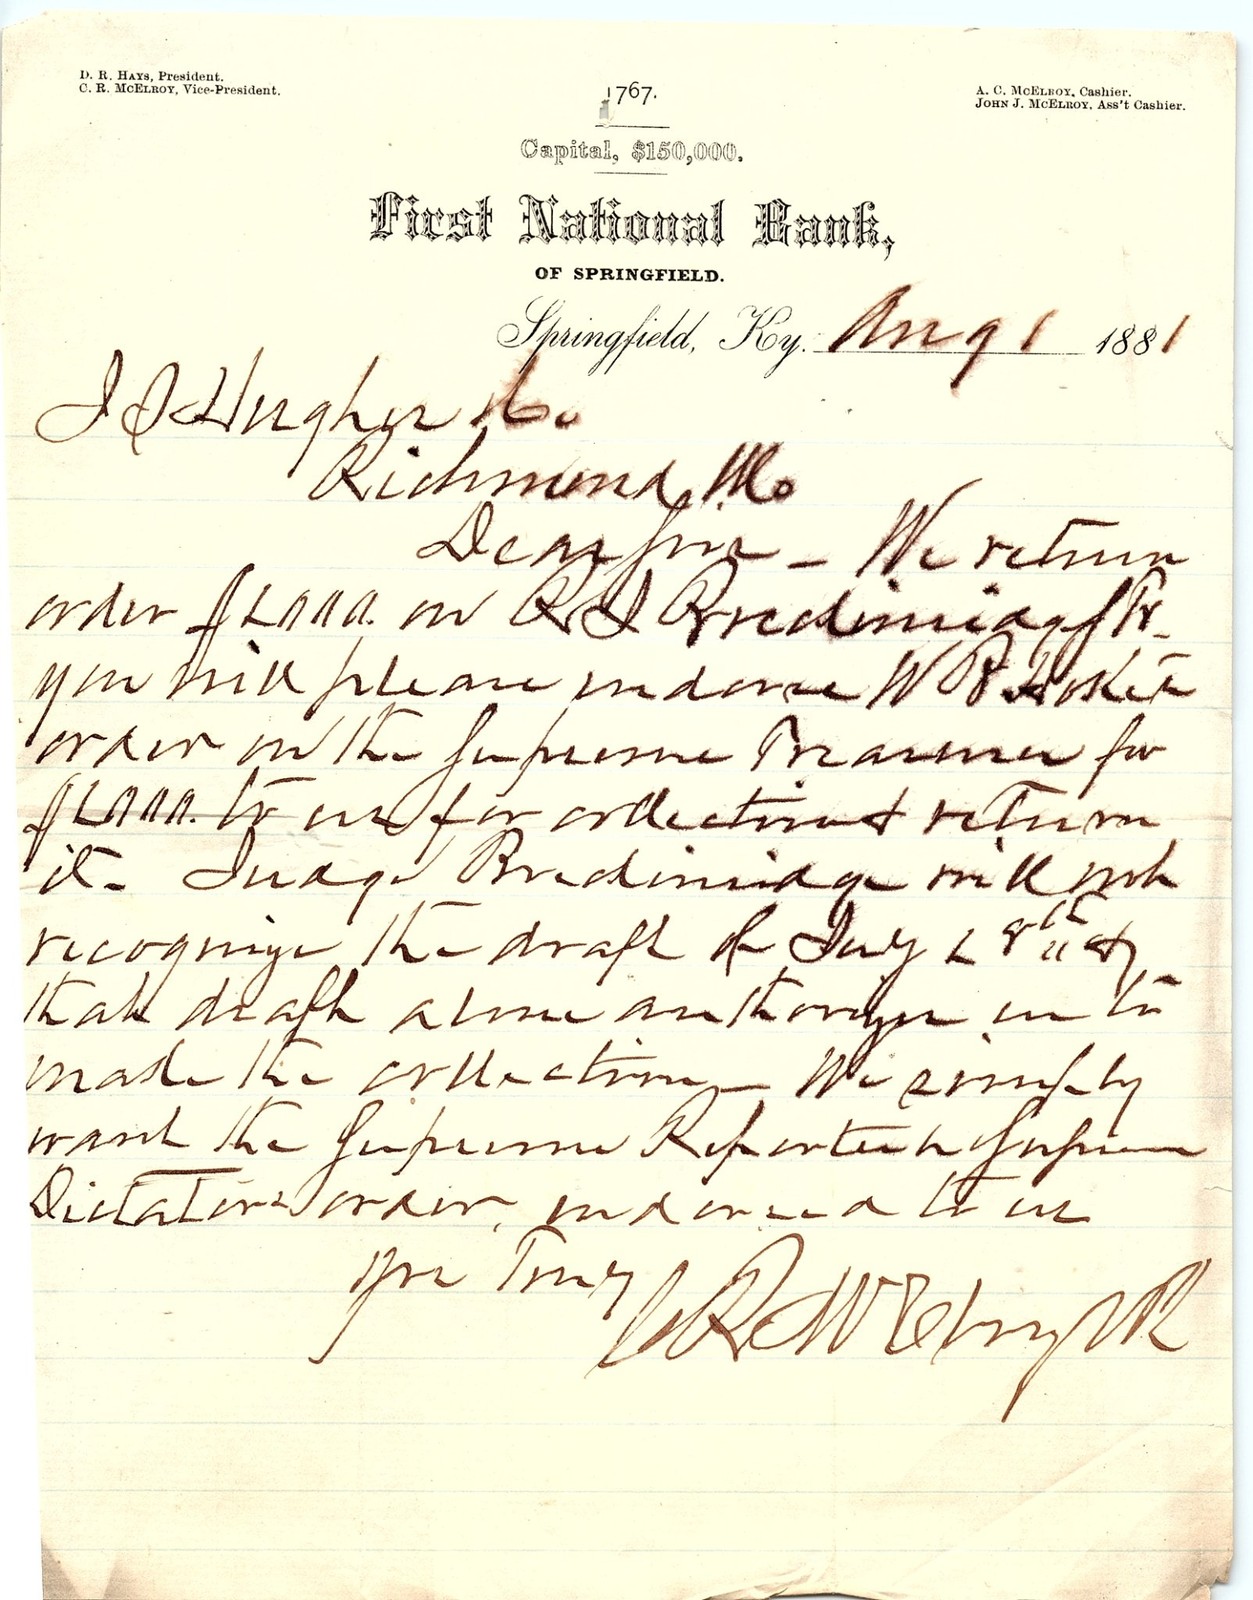 D. R. HAYS, President.
C. R. MCELROY, Vice-President.
1767.
A. C. MCELROY, Cashier.
JOHN J. MCELROY, Ass't Cashier.
Capital, $150,000.
First National Bank,
OF SPRINGFIELD.
Springfield, Ky. Aug 1 1881
J S Hughes & Co
Richmond, Mo
Dear Sirs - We return
order $2000. on R J Breckinridge Tr.
you will please endorse W
order on the Supreme Treasurer for
$2000. to us for collection & return
it. Judge Breckinridge will not
recognize the draft of July 28th
that draft alone authorizes us to
make the collection - We simply
want the Supreme Reporter & Supreme
Dictators order, endorsed to us
Yrs Truly
C R McElroy